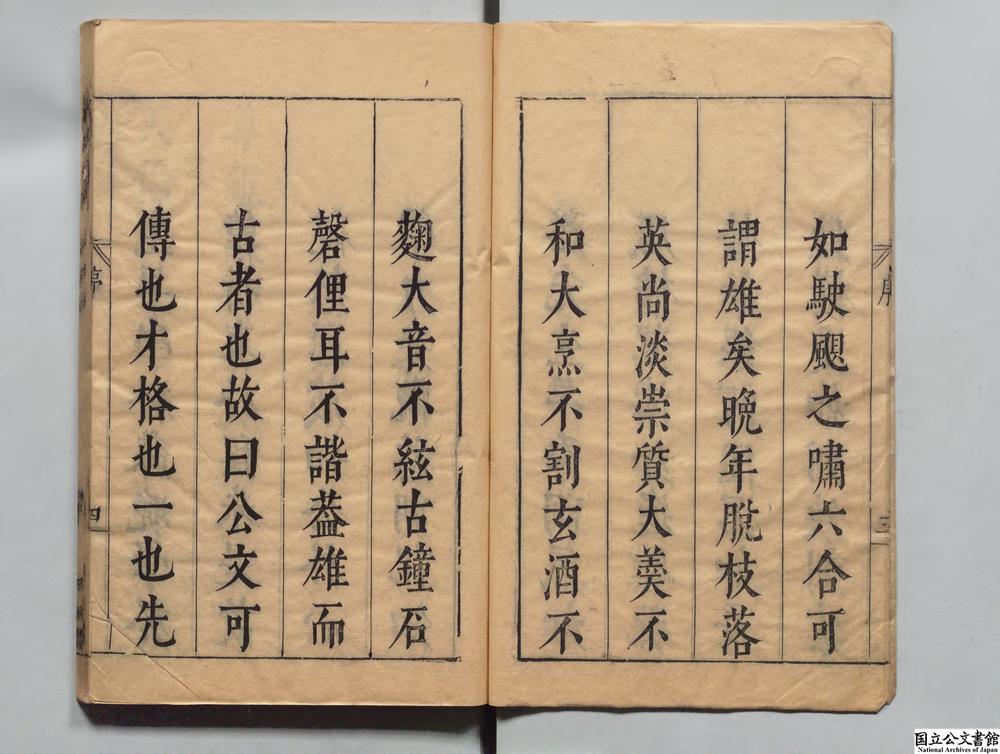 如駛颶之嘯六合可
謂雄矣晚年脫枝落
英尚淡崇質大羹不
和大烹不割玄酒不
序
三
麴大音不絃古鐘石
磬俚耳不諧葢雄而
古者也故曰公文可
傳也才格也一也先
序
四
国立公文書館
National Archives of Japan